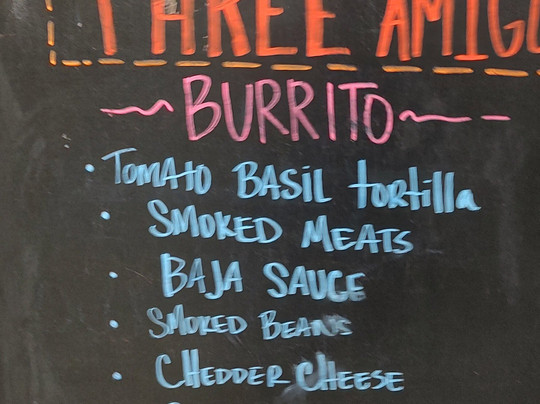 THREE AMIGO
~BURRITO~-
• TOMATO BASIL tortilla
• SMOKED MEATS
• BAJA SAUCE
• SMOKED BEANS
• CHEDDER CHEESE